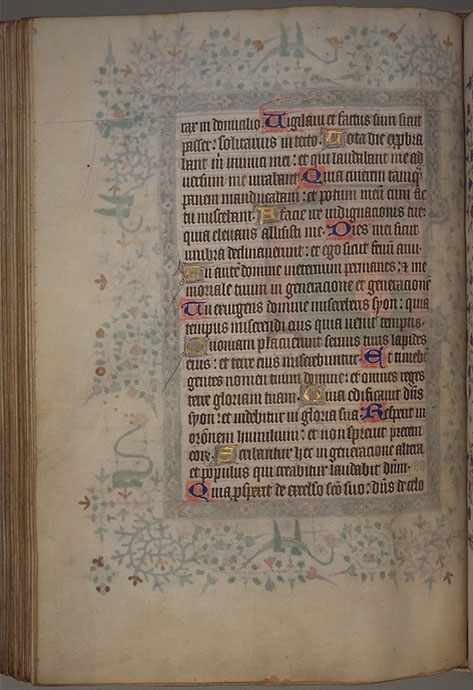 tax in domicilio Vigilaui et factus sum sicut
passer: solitarius in tecto. Tota die exproba
bant m̄ inimici mei: et qui laudabant me ad
uersum me iurabant Quia cinerem tamq̄
panem manducabam: et potum meū cum fle
tu miscebam A facie ire indignacionis tue:
quia eleuans allisisti me. Dies mei sicut
umbra declinauerunt: et ego sicut fenū arui.
Tu autē domine ineternum permanes: & me
moriale tuum in generacione et generacionē
Tu exurgens domine misereberis syon: quia
tempus miserendi eius quia uenit tempus.
Quoniam placuerunt seruis tuis lapides
eius: et terre eius miserebuntur Et timebūt
gentes nomen tuum domine: et omnes reges
terre gloriam tuam. Quia edificauit dn̄s
syon: et uidebitur in gloria sua. Respexit in
orōnem humilium: et non spreuit precem
eoꝝ. Scribantur hec in generacione altera
et populus qui creabitur laudabit dūm.
Quia ꝓspexit de excelso scō suo: dn̄s de celo